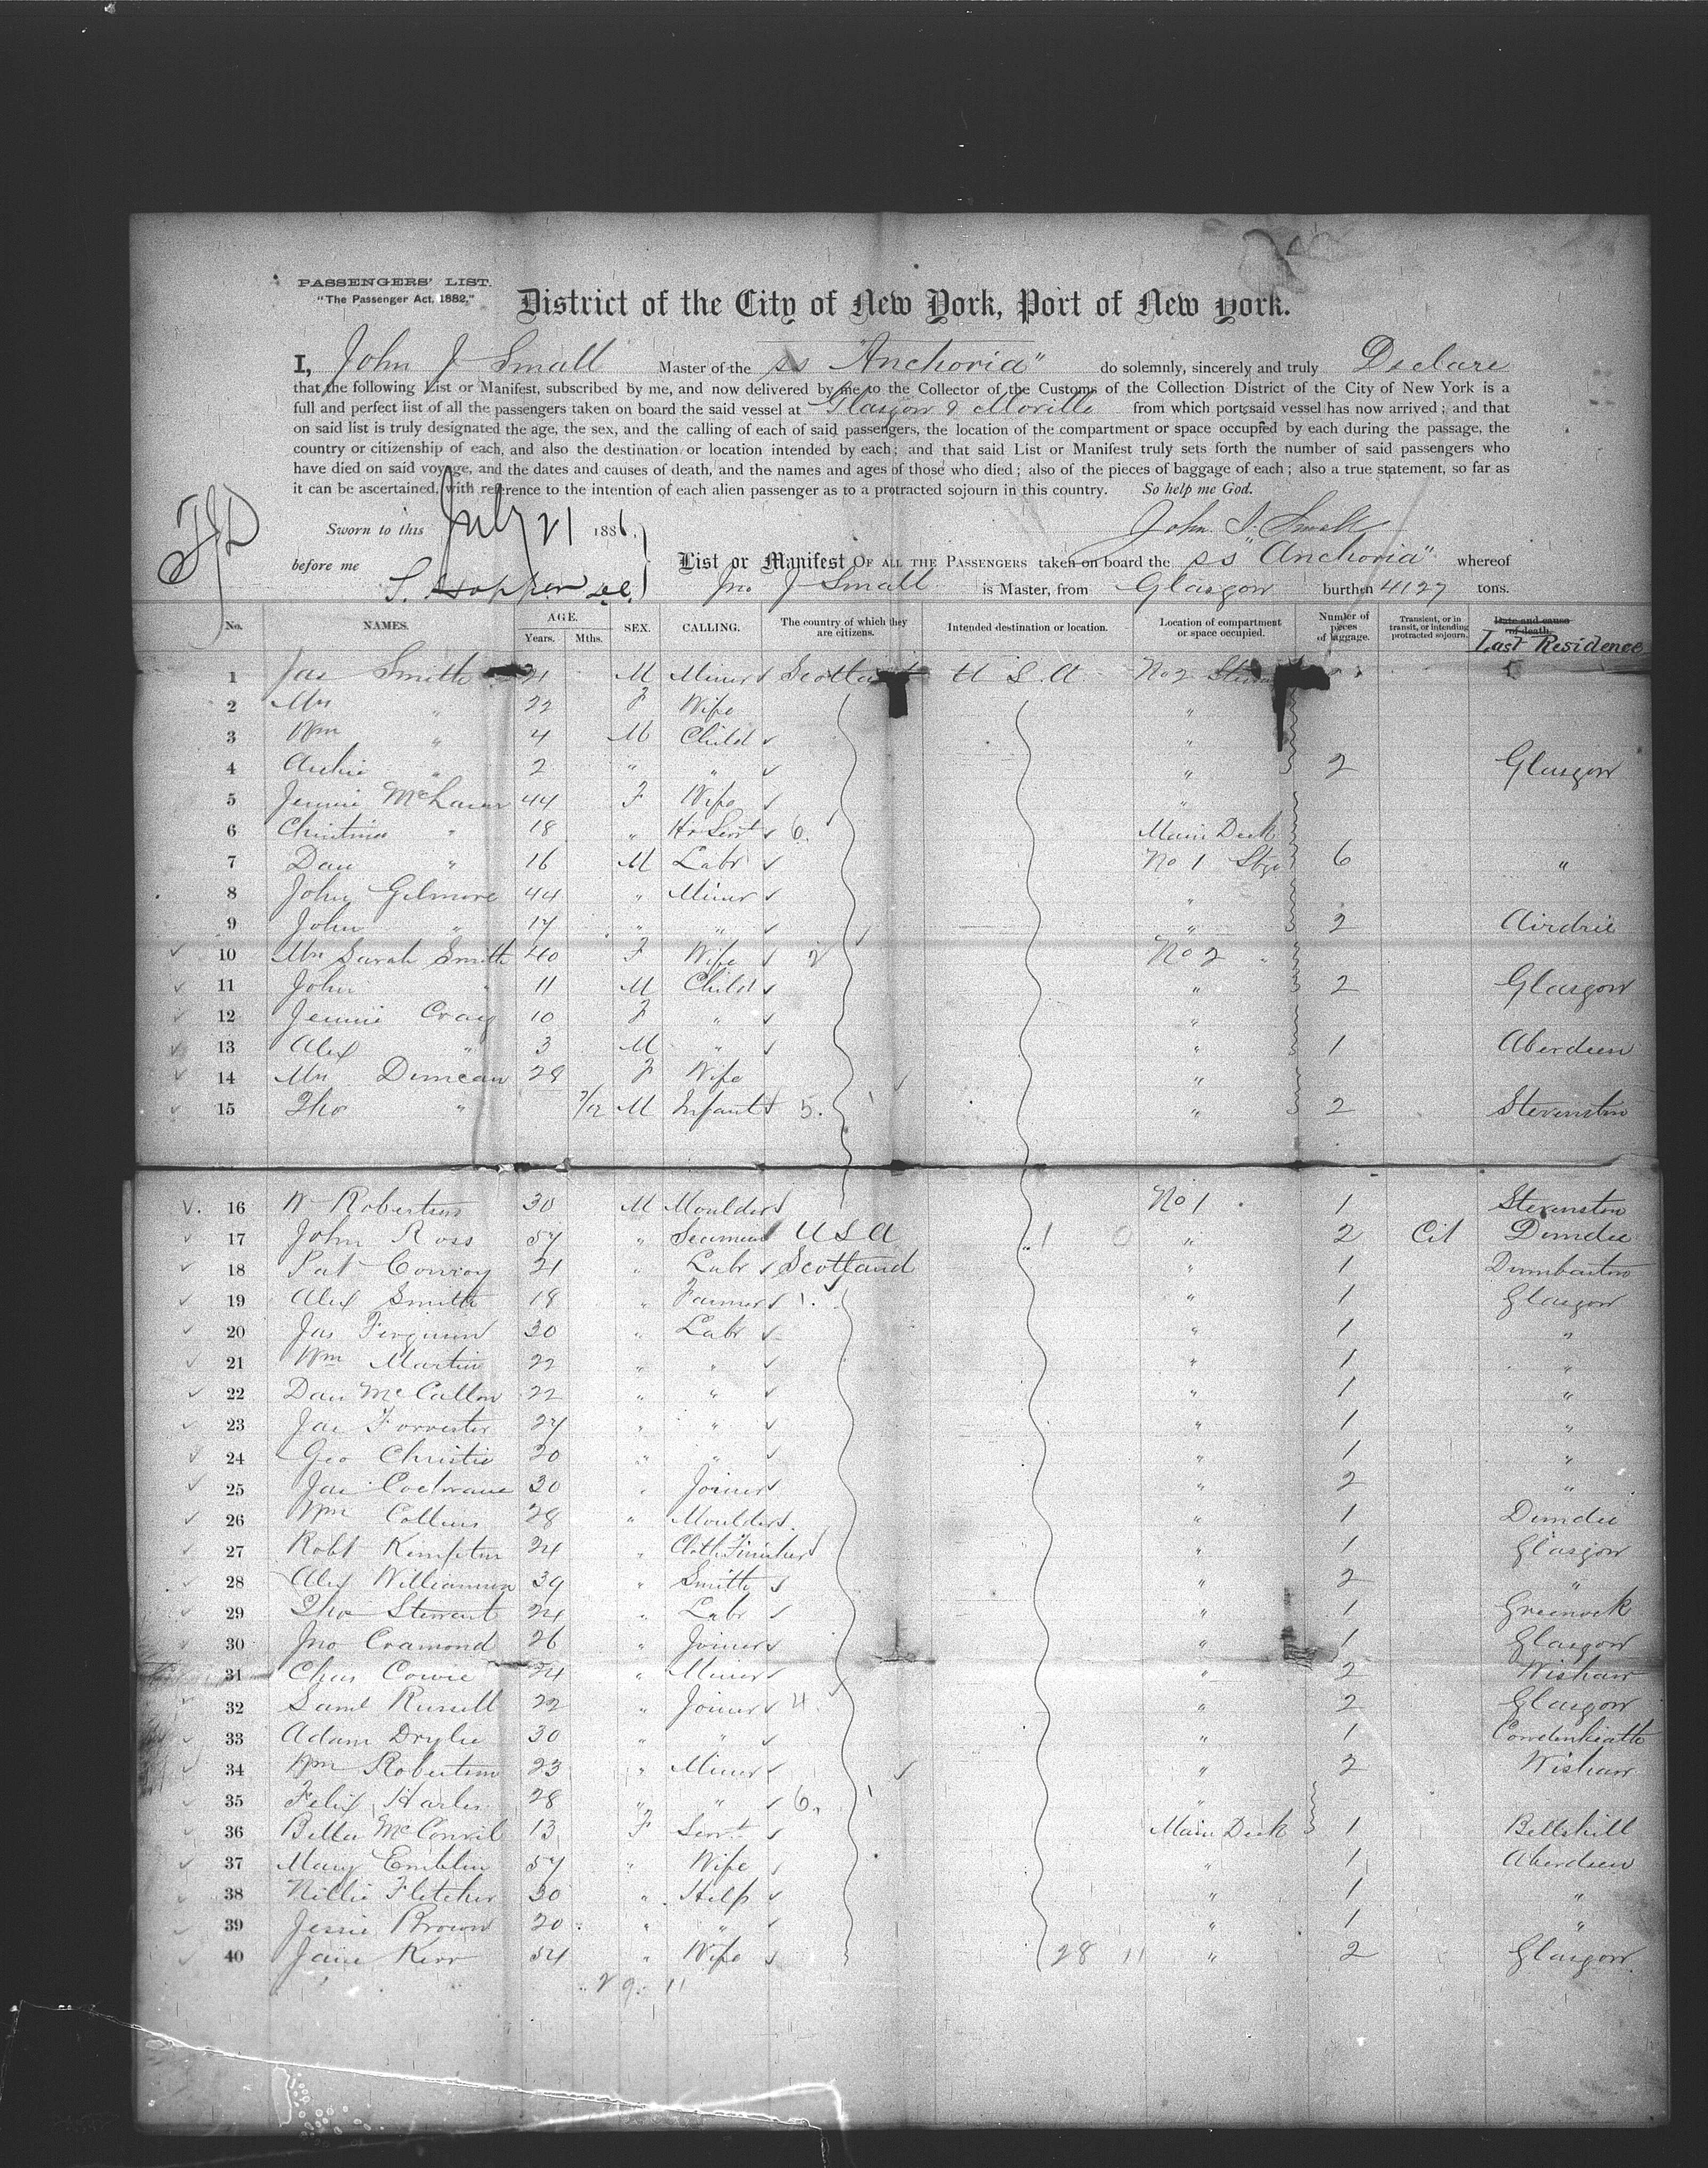 PASSENGERS' LIST.
"The Passenger Act, 1882."
District of the City of New York, Port of New York.
I, John J Small Master of the SS "Anchoria" do solemnly, sincerely and truly Declare
that the following List or Manifest, subscribed by me, and now delivered by me to the Collector of the Customs of the Collection District of the City of New York is a
full and perfect list of all the passengers taken on board the said vessel at Glasgow & Moville from which port, said vessel has now arrived; and that
on said list is truly designated the age, the sex, and the calling of each of said passengers, the location of the compartment or space occupied by each during the passage, the
country or citizenship of each, and also the destination or location intended by each; and that said List or Manifest truly sets forth the number of said passengers who
have died on said voyage, and the dates and causes of death, and the names and ages of those who died; also of the pieces of baggage of each; also a true statement, so far as
it can be ascertained, with reference to the intention of each alien passenger as to a protracted sojourn in this country. So help me God.
Sworn to this July 21 1886. John J. Small
before me List or Manifest OF ALL THE PASSENGERS taken on board the SS "Anchoria" whereof
Jno J Small is Master, from Glasgow burthen 4127 tons.
No. NAMES. AGE. Years. Mths. SEX. CALLING. The country of which they are citizens. Intended destination or location. Location of compartment or space occupied. Number of pieces of baggage. Transient, or in transit, or intending protracted sojourn. Date and cause of death. Last Residence
1 Jas Smith 21 M Miner Scotland U S A No 2
2 Mrs " 22 F Wife "
3 Wm " 4 M Child "
4 Archie " 2 " " " 2 Glasgow
5 Jennie McLaren 44 F Wife "
6 Christina " 18 " Ho Servt 6. Main Deck
7 Dan " 16 M Labr No 1 Stge 6 "
8 John Gilmore 44 " Miner "
9 John " 17 " " " 2 Airdrie
10 Mrs Sarah Smith 40 F Wife 2 No 2 "
11 John " 11 M Child " 2 Glasgow
12 Jennie Craig 10 F " "
13 Alex " 3 M " " 1 Aberdeen
14 Mrs Duncan 28 F Wife "
15 Tho " 7/12 M Infant 5. " 2 Stevenston
16 W Robertson 30 M Moulder No 1 1 Stevenston
17 John Ross 57 " Seaman U S A " 2 Cit Dundee
18 Pat Conroy 21 " Labr Scotland " 1 Dumbarton
19 Alex Smith 18 " Farmer 1. " 1 Glasgow
20 Jas Ferguson 30 " Labr " 1 "
21 Wm Martin 22 " " " 1 "
22 Dan McCallum 22 " " " 1 "
23 Jas Forrester 27 " " " 1 "
24 Geo Christie 20 " " " 1 "
25 Jas Cochrane 30 " Joiner " 2 "
26 Wm Collins 28 " Moulder " 1 Dundee
27 Robt Kempton 24 " Cloth Finisher " 1 Glasgow
28 Alex Williamson 39 " Smith " 2 "
29 Tho Stewart 24 " Labr " 1 Greenock
30 Jno Cramond 26 " Joiner " 1 Glasgow
31 Chas Cowie 24 " Miner " 2 Wishaw
32 Saml Russell 22 " Joiner 4 " 2 Glasgow
33 Adam Drylie 30 " " " 1 Cowdenbeath
34 Wm Robertson 23 " Miner " 2 Wishaw
35 Felix 28 " " 6. "
36 Bella 13 F Servt Main Deck 1 Bellshill
37 Mary Emblin 57 " Wife " 1 Aberdeen
38 Nellie Fletcher 30 " Help " 1 "
39 Jessie Brown 20 " " " 1 "
40 Jane Kerr 54 " Wife 28 11 " 2 Glasgow
29. 11